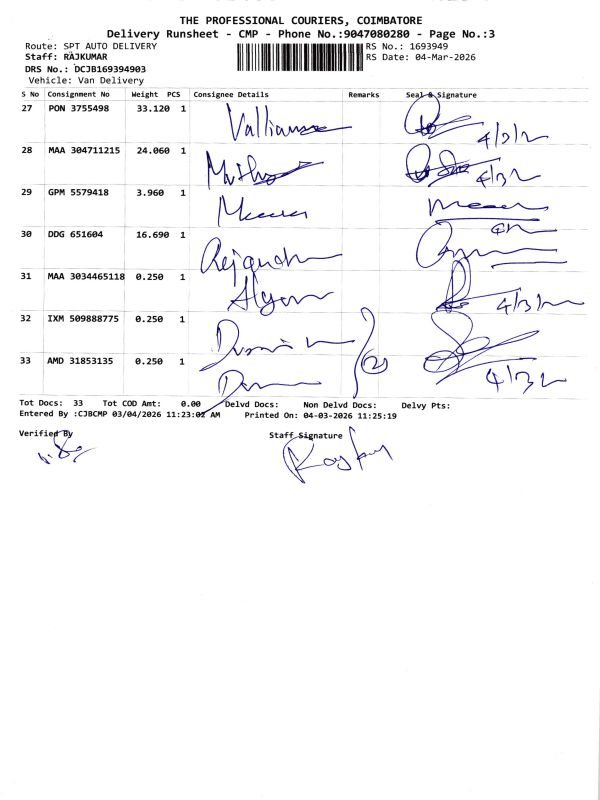 THE PROFESSIONAL COURIERS, COIMBATORE
Delivery Runsheet - CMP - Phone No.:9047080280 - Page No.:3
Route: SPT AUTO DELIVERY RS No.: 1693949
Staff: RAJKUMAR RS Date: 04-Mar-2026
DRS No.: DCJB169394903
Vehicle: Van Delivery
S No Consignment No Weight PCS Consignee Details Remarks Seal & Signature
27 PON 3755498 33.120 1 4/3/2
28 MAA 304711215 24.060 1 4/3/2
29 GPM 5579418 3.960 1
30 DDG 651604 16.690 1
31 MAA 3034465118 0.250 1 4/3/2
32 IXM 509888775 0.250 1
33 AMD 31853135 0.250 1 (2) 4/3/2
Tot Docs: 33 Tot COD Amt: 0.00 Delvd Docs: Non Delvd Docs: Delvy Pts:
Entered By :CJBCMP 03/04/2026 11:23:02 AM Printed On: 04-03-2026 11:25:19
Verified By Staff Signature